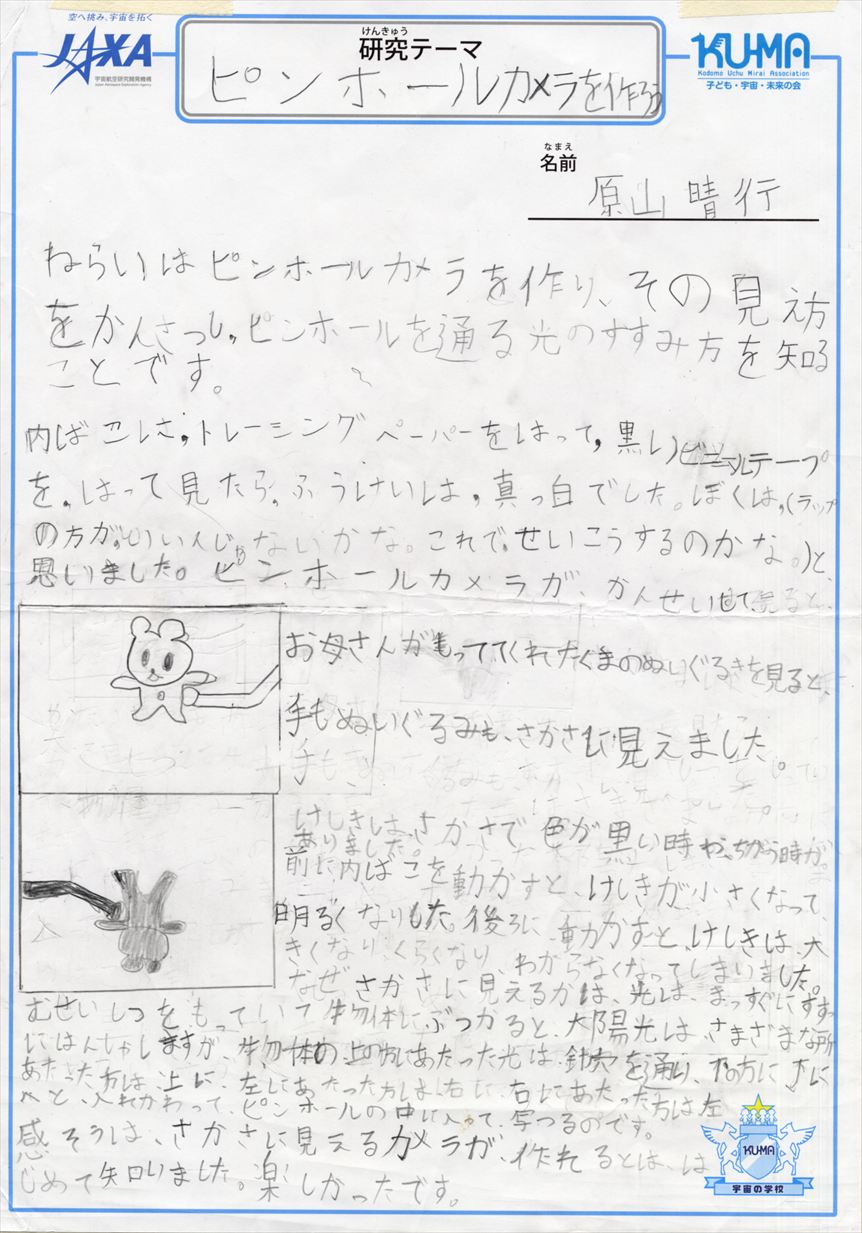 空へ挑み、宇宙を拓く
JAXA
宇宙航空研究開発機構
Japan Aerospace Exploration Agency
けんきゅう
研究テーマ
ピンホールカメラを作ろう
KU-MA
Kodomo Uchu Mirai Association
子ども・宇宙・未来の会
なまえ
名前
原山晴行
ねらいはピンホールカメラを作り、その見え方
をかんさつし、ピンホールを通る光のすすみ方を知る
ことです。
内ばこしさ、トレーシングペーパーをはって、黒いビニールテープ
を、はって見たら、ふうけいは、真っ白でした。ぼくは、(ラップ
の方が、いいんじゃないかな。これで、せいこうするのかな。)と、
思いました。ピンホールカメラが、かんせいして、見ると、
お母さんがもっててくれたくまのぬいぐるみを見ると、
手もぬいぐるみも、さかさに見えました。
けしきは、さかさで色が黒い時や、ちがう時が、
ありました。
前に内ばこを動かすと、けしきが小さくなって、
明るくなりました。後ろに、動かすと、けしきは、大
きくなり、くらくなり、わからなくなってしまいました。
なぜさかさに見えるかは、光は、まっすぐにすす
むせいしつをもっていて物体にぶつかると、太陽光は、さまざまな所
にはんしゃしますが、物体の上の方にあたった光は針穴を通り、下の方に下に
あたった方は、上に、左にあたった方は右に、右にあたった方は左
へと、入れかわって、ピンホールの中に入って、写つるのです。
感そうは、さかさに見えるカメラが、作れるとは、は
じめて知りました。楽しかったです。
KU-MA
宇宙の学校